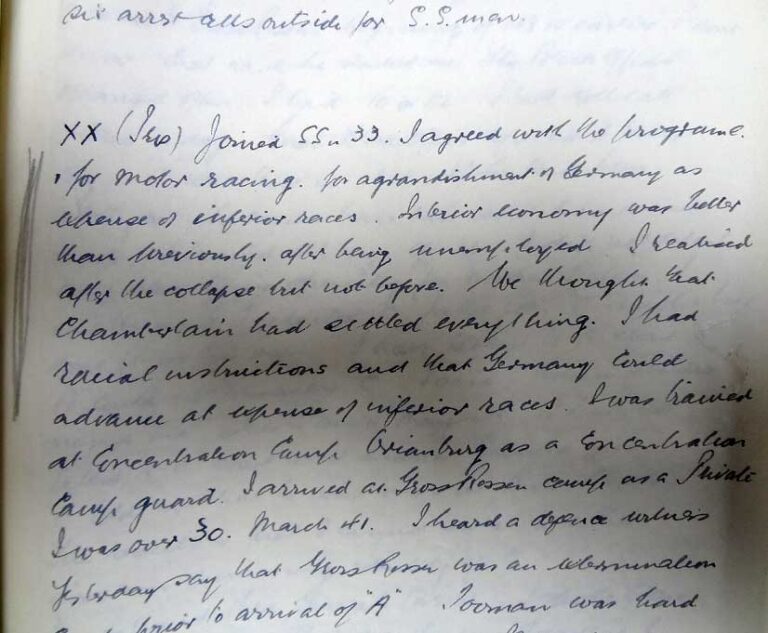 six arrest cells outside for S.S. men.
XX (Pros) Joined SS in 33. I agreed with the programe.
for motor racing. for agrandishment of Germany as
expense of inferior races. Interior economy was better
than previously. after being unemployed I realised
after the collapse but not before. We thought that
Chamberlain had settled everything. I had
racial instructions and that Germany could
advance at expense of inferior races. I was trained
at Concentration Camp Orianburg as a Concentration
Camp guard. I arrived at GrossRosen camp as a Private
I was over 30. March 41. I heard a defence witness
yesterday say that GrossRosen was an extermination
prior to arrival of "A" was hard